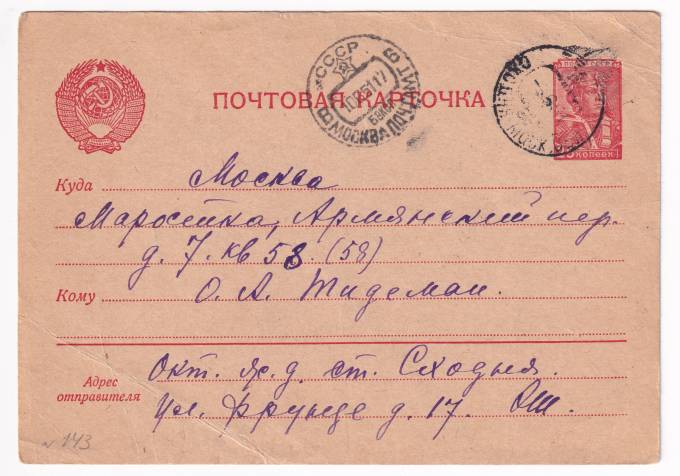 СССР
МОСКВА ПОЧТАМТ
ПОЧТОВАЯ КАРТОЧКА
КОПЕЕК
Куда Москва
Маросейка, Армянский пер.
д. 7. кв 58 (58)
Кому О. А. Тидеман.
Адрес отправителя
Окт. ж. д. ст. Сходня.
Ул. Фрунзе д. 17.
№ 143